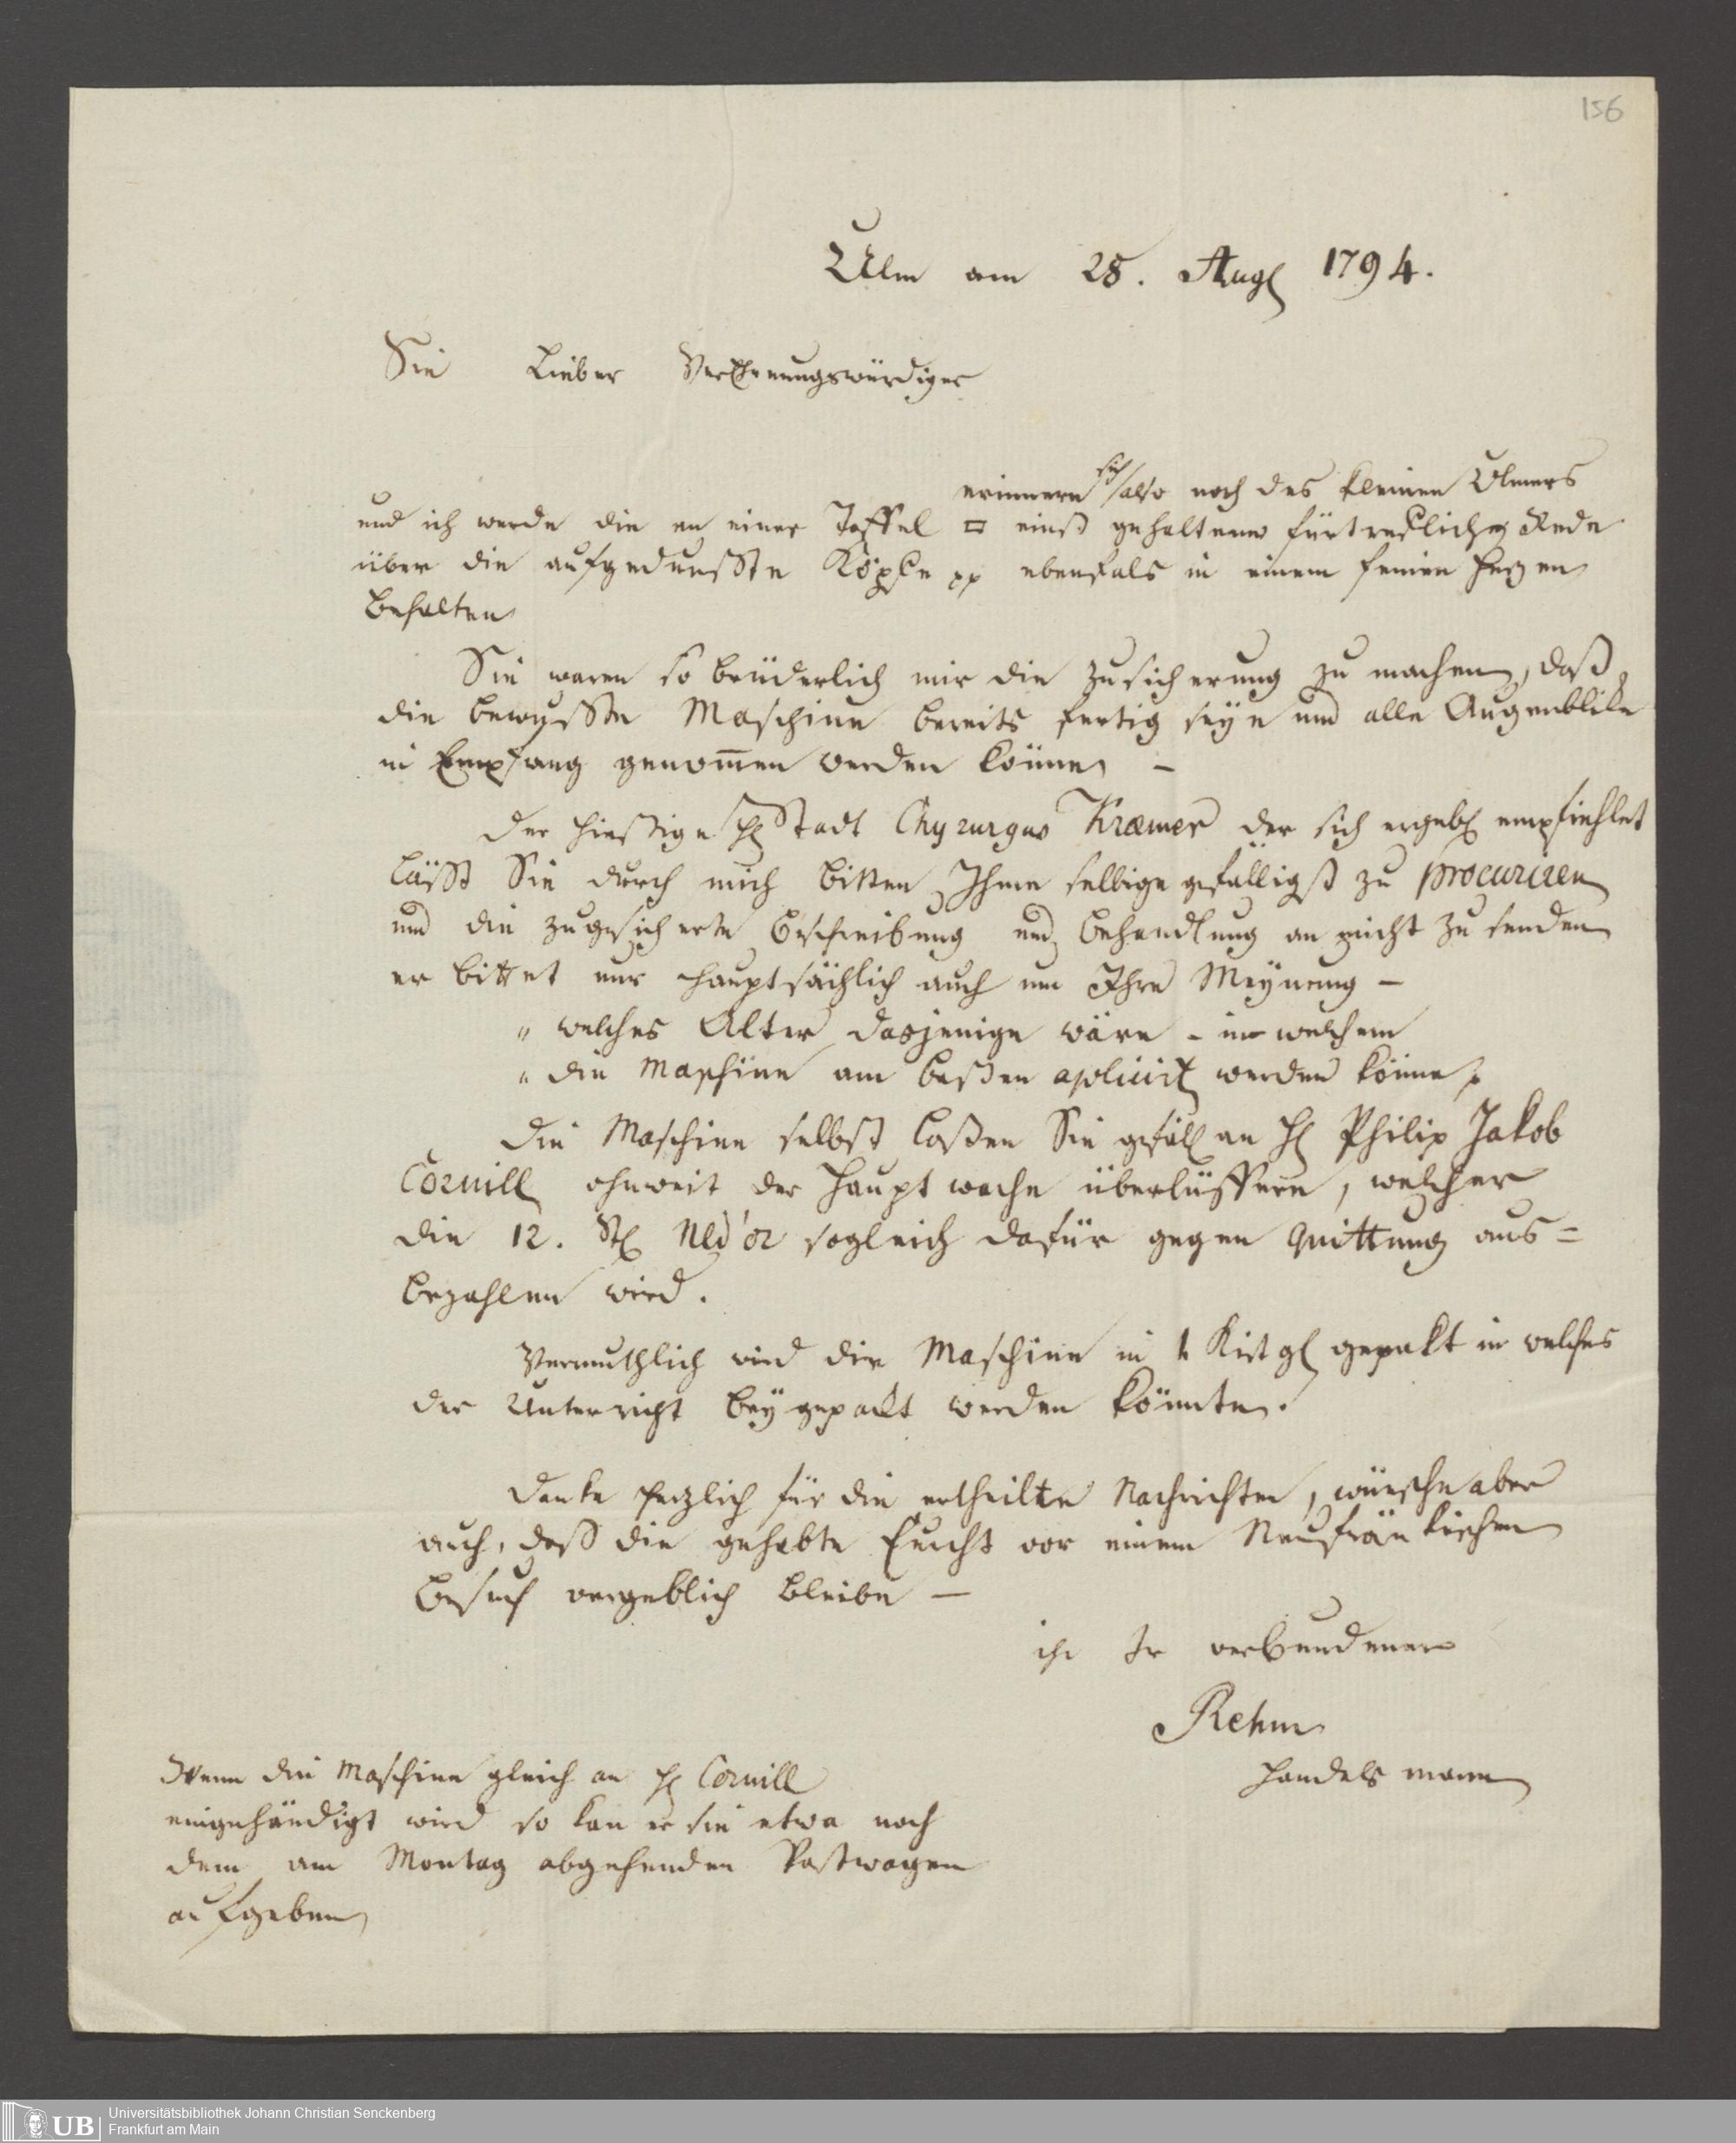 156
Ulm am 28. Augl 1794.
Sie Lieber Verehrungswürdiger
erinnern sich also noch des kleinen Ulmers
und ich werde die an einer Taffel □ einst gehaltene fürtrefliche Rede
über die aufgedunsste Köpfe pp ebenfals in einem feinen Herzen
behalten
Sie waren so brüderlich mir die Zusicherung zu machen, daß
die bewusste Maschine bereits fertig seye und alle Augenblike
in Empfang genom̅en werden könne –
Der hießige H Stadt Chyrurgus Kræmer der sich ergebl empfiehlet
lässt Sie durch mich bitten Ihme selbige gefälligst zu procuriren
und die zugesicherte Beschreibung und Behandlung an mich zu senden
er bittet nur hauptsächlich auch um Ihre Meynung –
„ welches Alter dasjenige wäre – in welchem
„ die Maschine am besten aplicirt werden könne
Die Maschine selbst laßen Sie gefäll an H Philip Jakob
Cornill ohnweit der Hauptwache überlüffern, welcher
die 12. St Nld'or sogleich dafür gegen Quittung aus=
bezahlen wird.
Vermuthlich wird die Maschine in 1 Kistgl gepakt in welches
der Unterricht beygepakt werden könnte.
Danke herzlich für die ertheilte Nachrichten, wünsche aber
auch, daß die gehabte Furcht vor einem Neufränkischen
Besuch vergeblich bleibe –
ihr Ir verbundener
Rehm
Handelsmann
Wenn die Maschine gleich an H Cornill
eingehändigt wird so kan er sie etwa noch
dem am Montag abgehenden Postwagen
aufgeben
UB Universitätsbibliothek Johann Christian Senckenberg
Frankfurt am Main